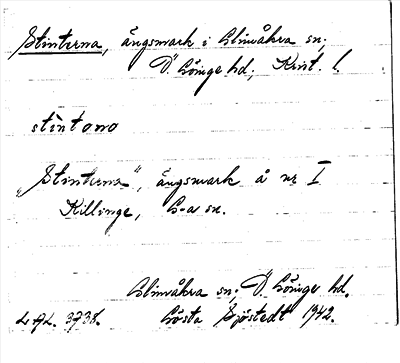 Stinterna, ängsmark i Glimåkra sn,
Ö. Göinge hd, Krist. l.
stintono
"Stinterna", ängsmark å nr I
Killinge, G-a sn.
Glimåkra sn, Ö. Göinge hd.
L.A.L. 3738. Gösta Sjöstedt 1942.